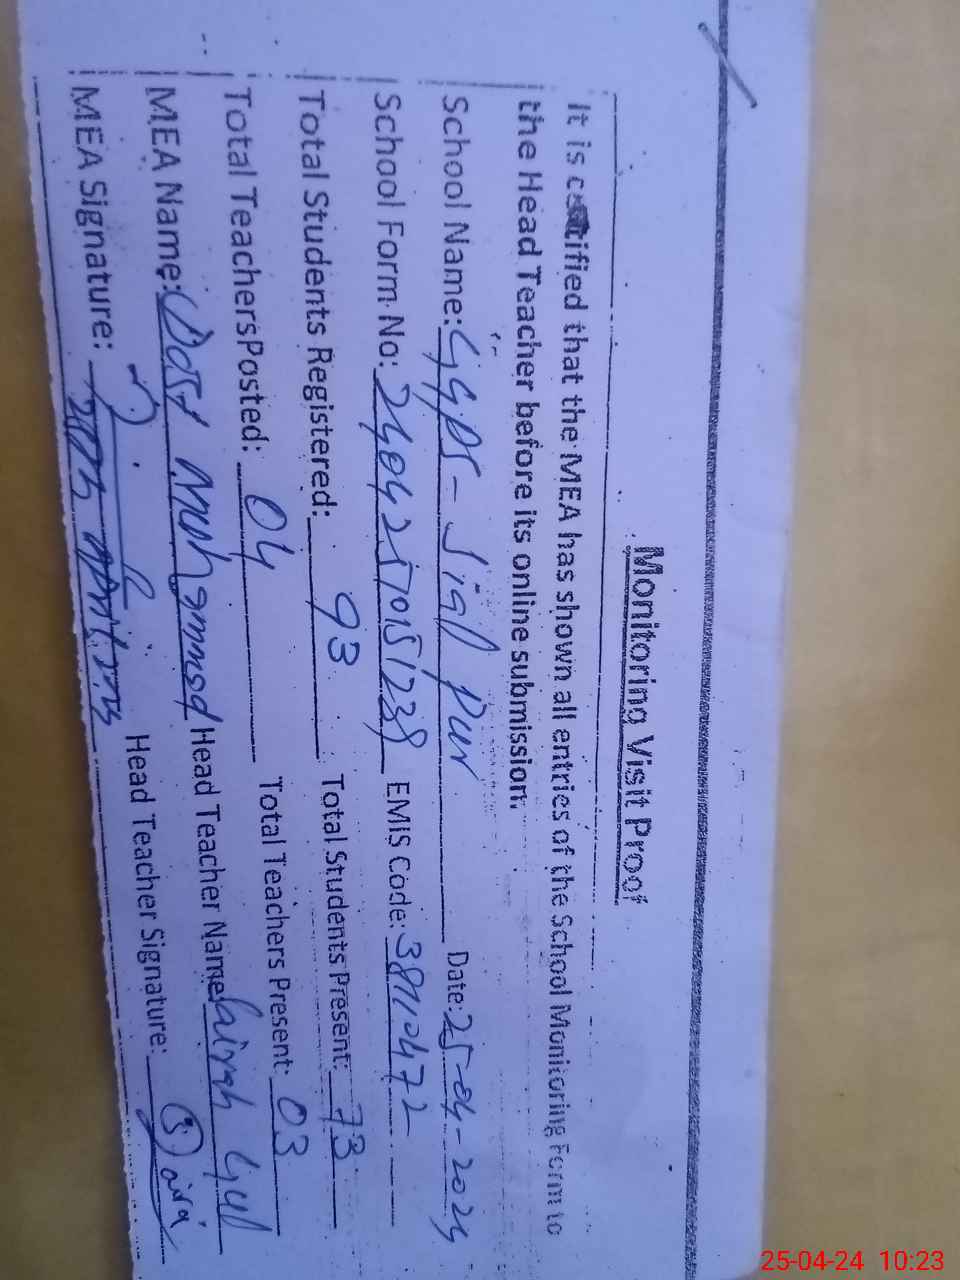 Monitoring Visit Proof
It is certified that the MEA has shown all entries of the School Monitoring Form to
the Head Teacher before its online submission.
School Name: GGPS - Sial Pur Date: 25-04-2024
School Form No: EMIS Code:
Total Students Registered: 93 Total Students Present: 73
Total Teachers Posted: 04 Total Teachers Present: 03
MEA Name: Dost Muhammad Head Teacher Name: Gul
MEA Signature: Head Teacher Signature:
25-04-24 10:23